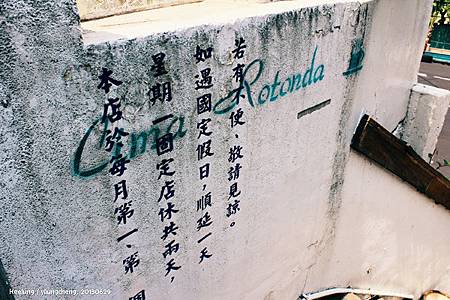 Cima Rotonda
本店於每月第一、第
星期一固定店休共兩天，
如遇國定假日，順延一天
若有不便、敬請見諒。
20130629